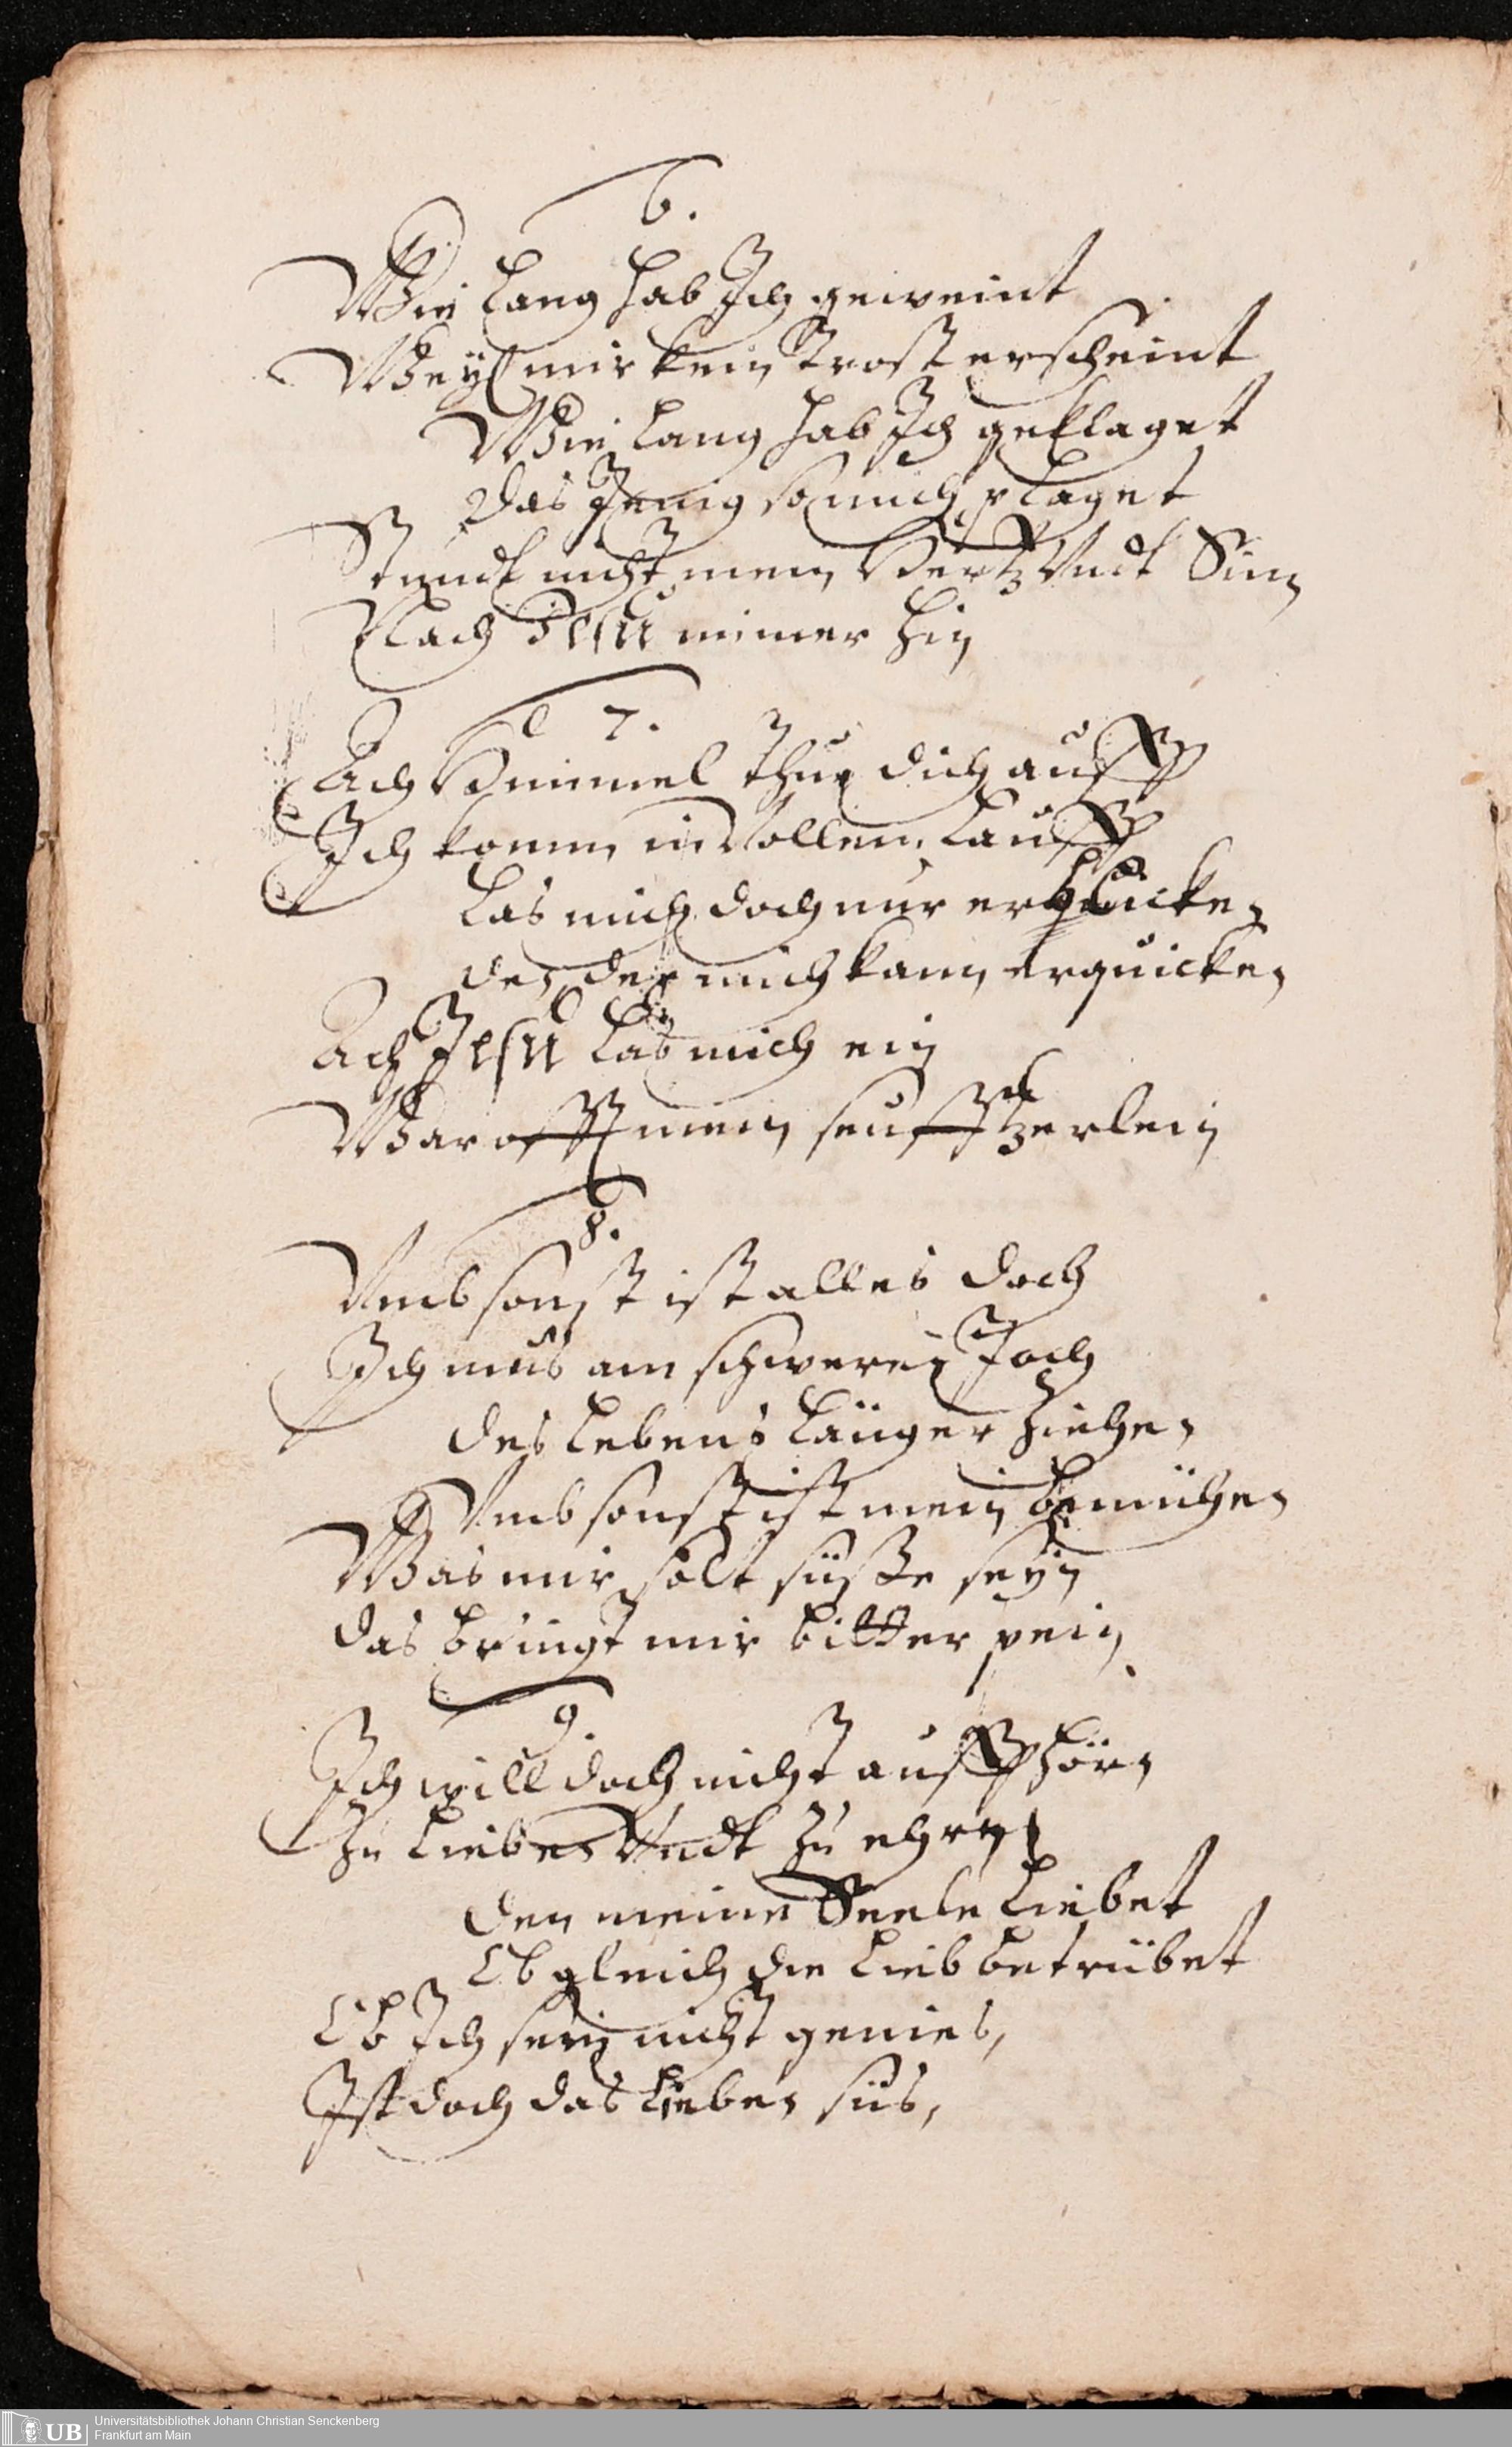 6.
Wie lang hab Ich geweint
Weÿl mir kein Trost erscheint
Wie lang hab Ich geklaget
Das Jenig so mich plaget
Stundt nicht mein Hertz Vndt Sinn
Nach Jesu immer hin
7.
Ach Himmel thue dich auff
Ich komm in Vollem lauff
Las mich doch nur erblicke(n)
den der mich kann erquicken
Ach Jesu las mich ein
War offt mein seufftzerlein
8.
Vmb sonst ist alles doch
Ich mus am schweren Joch
des Lebens länger ziehen
Vmb sonst ist mein bemühen
Was mir solt süsse seÿn
das bringt mir bitter pein
9.
Ich will doch nicht auffhörn
Zu lieben Vndt zu ehrn
den meine Seele liebet
Ob gleich die lieb betrübet
Ob Ich sein nicht genies,
Ist doch das lieben süs,
UB
Universitätsbibliothek Johann Christian Senckenberg
Frankfurt am Main